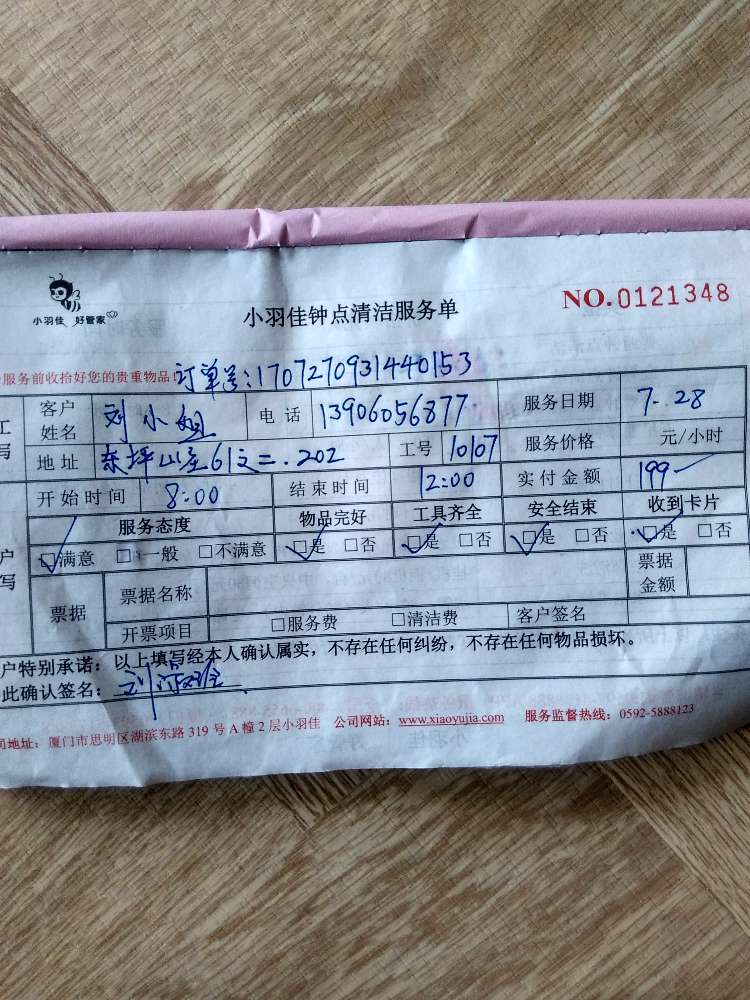 小羽佳 好管家
小羽佳钟点清洁服务单
NO.0121348
服务前收拾好您的贵重物品 订单号:1707270931440153
客户姓名 刘小姐 电话 13906056877 服务日期 7-.28
地址 东坪山 61 202 工号 10107 服务价格 元/小时
开始时间 8:00 结束时间 12:00 实付金额 199
服务态度 物品完好 工具齐全 安全结束 收到卡片
☑满意 □一般 □不满意 ☑是 □否 ☑是 □否 ☑是 □否 ☑是 □否
票据 票据名称 票据金额
开票项目 □服务费 □清洁费 客户签名
户特别承诺:以上填写经本人确认属实,不存在任何纠纷,不存在任何物品损坏。
此确认签名:
司地址:厦门市思明区湖滨东路 319 号 A 幢 2 层小羽佳 公司网站:www.xiaoyujia.com 服务监督热线:0592-5888123